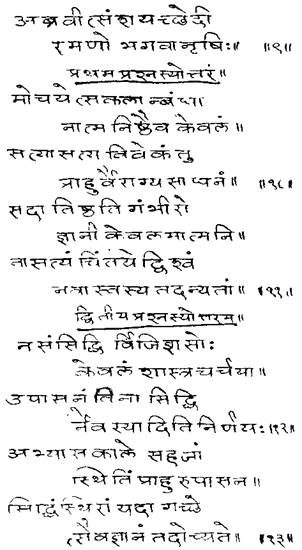 अब्रवीत्संशयच्छेदी
रमणो भगवानृषिः॥ ॥९॥
प्रथमप्रश्नस्योत्तरं॥
मोचयेत्सकलान्बंधा
नात्मनिष्ठैव केवलं॥
सत्यासत्यविवेकंतु
प्राहुर्वैराग्यसाधनं॥ ॥१०॥
सदातिष्ठतिगंभीरो
ज्ञानीकेवलमात्मनि॥
नासत्यं चिंतयेद्विश्वं
नवास्वस्यतदन्यतां॥ ॥११॥
द्वितीयप्रश्नस्योत्तरम्॥
नसंसिद्धिर्विजिज्ञासोः
केवलं शास्त्रचर्चया॥
उपासनंविनासिद्धि
र्नैवस्यादितिनिर्णयः॥१२॥
अभ्यासकाले सहजां
स्थितिं प्राहुरुपासनं॥
सिद्धिंस्थिरांयदागच्छे
त्सैवज्ञानं तदोच्यते॥ ॥१३॥